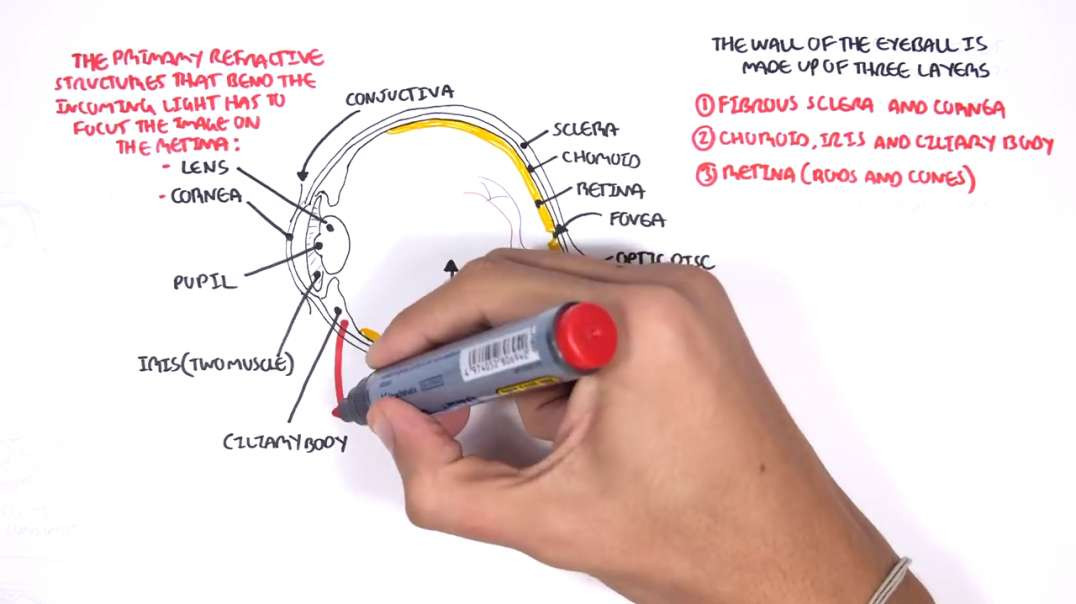 THE PRIMARY REFRACTIVE
STRUCTURES THAT BEND THE
INCOMING LIGHT HAS TO
FOCUT THE IMAGE ON
THE RETINA:
- LENS
- CORNEA
PUPIL
IRIS (TWO MUSCLE)
CILIARY BODY
CONJUCTIVA
SCLERA
CHOROID
RETINA
FOVEA
OPTIC DISC
THE WALL OF THE EYEBALL IS
MADE UP OF THREE LAYERS
① FIBROUS SCLERA AND CORNEA
② CHOROID, IRIS AND CILIARY BODY
③ RETINA (RODS AND CONES)